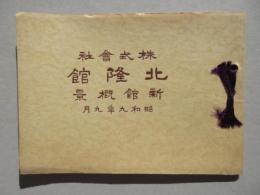 株式會社
北隆館
新館概景
昭和九年九月